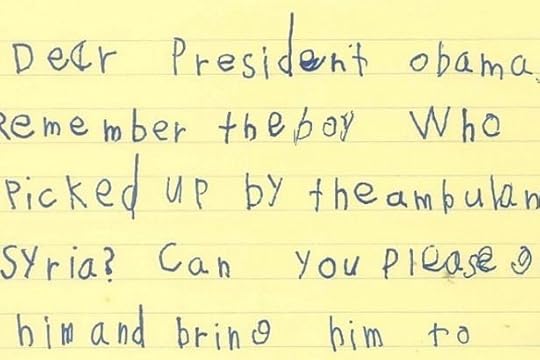 Dear President obama,
Remember the boy Who
Picked up by the ambulan
Syria? Can you please g
him and bring him to